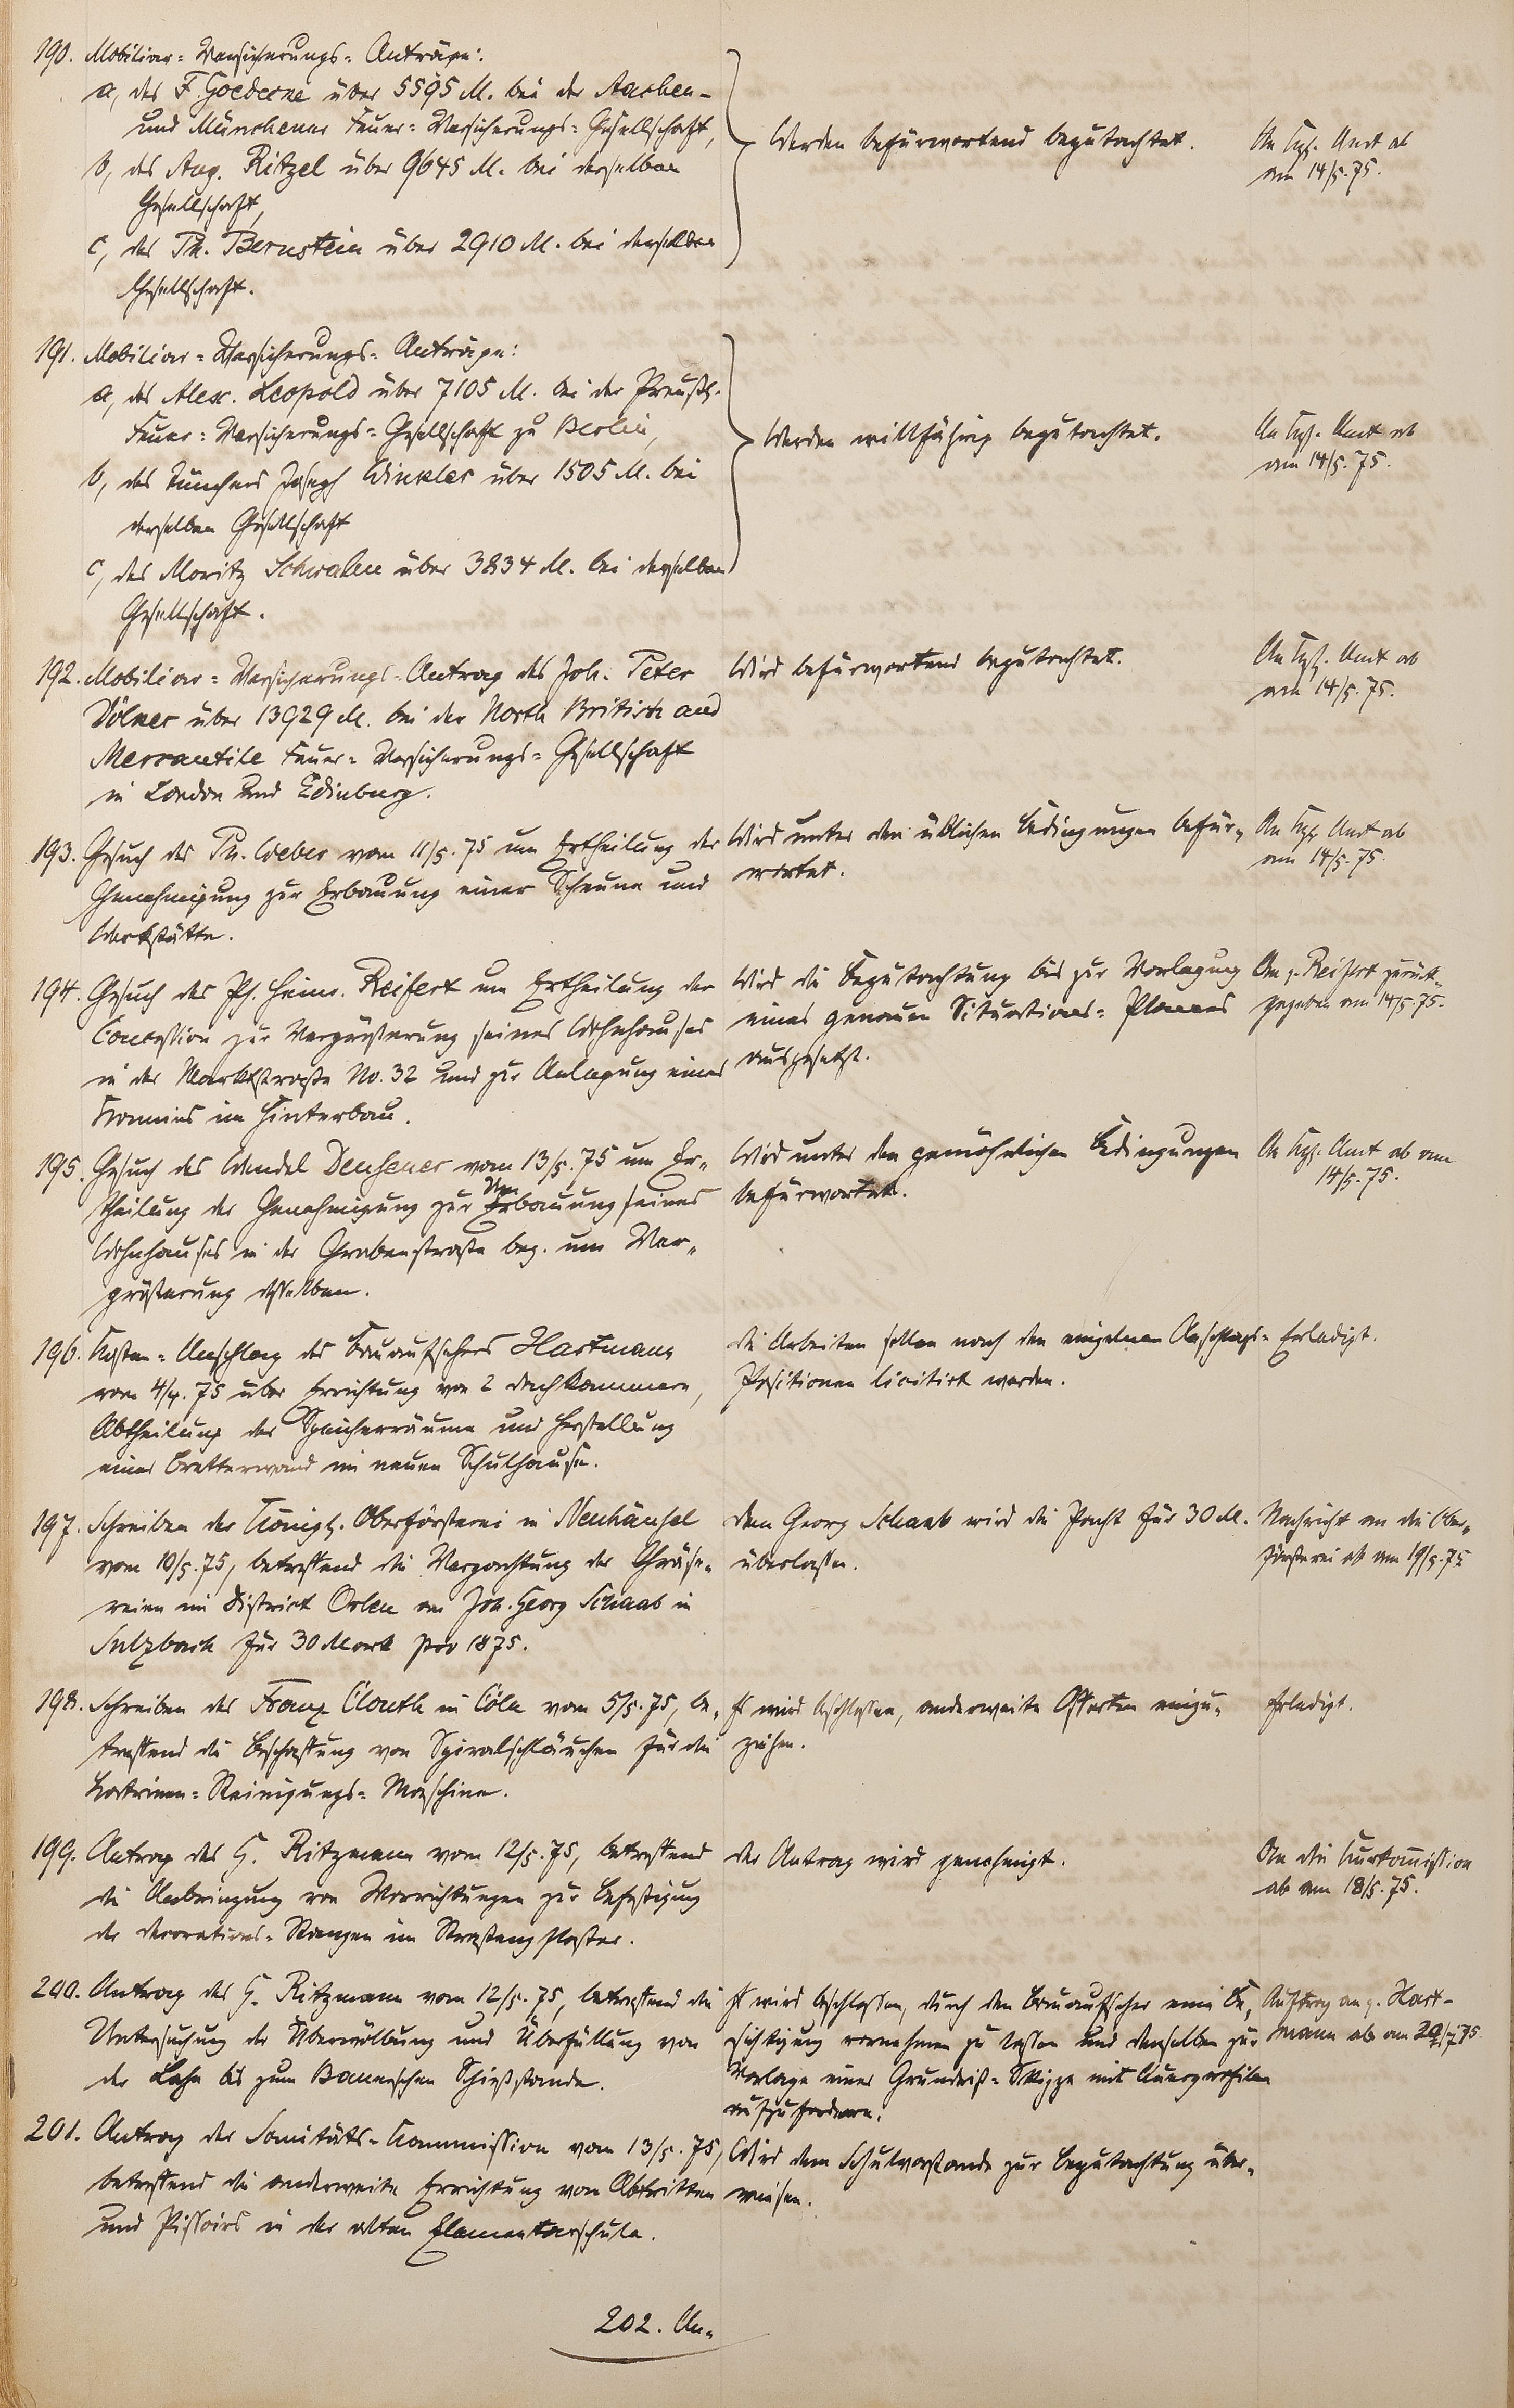 190. Mobiliar=Versicherungs=Anträge:
a, des F. Goedecke über 5595 M. bei der Aachen-
und Münchener Feuer=Versicherungs=Gesellschaft,
b, des Aug. Ritzel über 9645 M. bei derselben
Gesellschaft,
c, des Ph. Bernstein über 2910 M. bei derselben
Gesellschaft.
Werden befürwortend begutachtet.
An Kgl. Amt ab
am 14/5. 75.
191. Mobiliar=Versicherungs=Anträge:
a, des Alex. Leopold über 7105 M. bei der Preuß.
Feuer=Versicherungs=Gesellschaft zu Berlin,
b, des Tünchers Joseph Winkler über 1505 M. bei
derselben Gesellschaft
c, des Moritz Schwalm über 3834 M. bei derselben
Gesellschaft.
Werden willfährig begutachtet.
An Kgl. Amt ab
am 14/5. 75.
192. Mobiliar=Versicherungs=Antrag des Joh. Peter
Völker über 13929 M. bei der North British and
Mercantile Feuer=Versicherungs=Gesellschaft
in London und Edinburg.
Wird befürwortend begutachtet.
An Kgl. Amt ab
am 14/5. 75.
193. Gesuch des Ph. Weber vom 11/5. 75 um Ertheilung der
Genehmigung zur Erbauung einer Scheune und
Werkstätte.
Wird unter den üblichen Bedingungen befür-
wortet.
An Kgl. Amt ab
am 14/5. 75.
194. Gesuch des Ph. Heinr. Reifert um Ertheilung der
Concession zur Vergrößerung seines Wohnhauses
in der Marktstraße No. 32 und zur Anlegung eines
Kamins im Hinterbau.
Wird die Begutachtung bis zur Vorlegung
eines genauen Situations=Planes
ausgesetzt.
An p. Reifert zurück-
gegeben am 14/5. 75.
195. Gesuch des Wendel Deusener vom 13/5. 75 um Er-
theilung der Genehmigung zur Erbauung seines
Um
Wohnhauses in der Grabenstraße bez. um Ver-
größerung desselben.
Wird unter den gewöhnlichen Bedingungen
befürwortet.
An Kgl. Amt ab am
14/5. 75.
196. Kosten=Anschlag des Bauaufsehers Hartmann
vom 4/4. 75 über Errichtung von 2 Dachkammern,
Abtheilung der Speicherräume und Herstellung
einer Bretterwand im neuen Schulhause.
Die Arbeiten sollen nach den einzelnen Anschlags=
Positionen licitirt werden.
Erledigt.
197. Schreiben der Königl. Oberförsterei in Neuhäusel
vom 10/5. 75, betreffend die Verpachtung der Gräse-
reien im District Orlen an Joh. Georg Schaab in
Sulzbach für 30 Mark pro 1875.
Dem Georg Schaab wird die Pacht für 30 M.
überlassen.
Nachricht an die Ober-
försterei ab am 19/5. 75
198. Schreiben des Franz Clouth in Cöln vom 5/5. 75, be-
treffend die Beschaffung von Spiralschläuchen für die
Latrinen=Reinigungs=Maschine.
Es wird beschlossen, anderweite Offerten einzu-
ziehen.
Erledigt.
199. Antrag des H. Ritzmann vom 12/5. 75, betreffend
die Anbringung von Vorrichtungen zur Befestigung
der Decorations=Stangen im Straßenpflaster.
Der Antrag wird genehmigt.
An die Kurkommission
ab am 18/5. 75.
200. Antrag des H. Ritzmann vom 12/5. 75, betreffend die
Untersuchung der Überwölbung und Überfüllung von
der Lahn bis zum Bauerschen Schießstande.
Es wird beschlossen, durch den Bauaufseher eine Be-
sichtigung vornehmen zu lassen und denselben zur
Vorlage einer Grundriß=Skizze mit Querprofilen
aufzufordern.
Auftrag an p. Hart-
mann ab am 20/5. 75.
201. Antrag der Sanitäts=Kommission vom 13/5. 75,
betreffend die anderweite Errichtung von Abtritten
und Pissoirs in der alten Elementarschule.
Wird dem Schulvorstande zur Begutachtung über-
wiesen.
202. An-